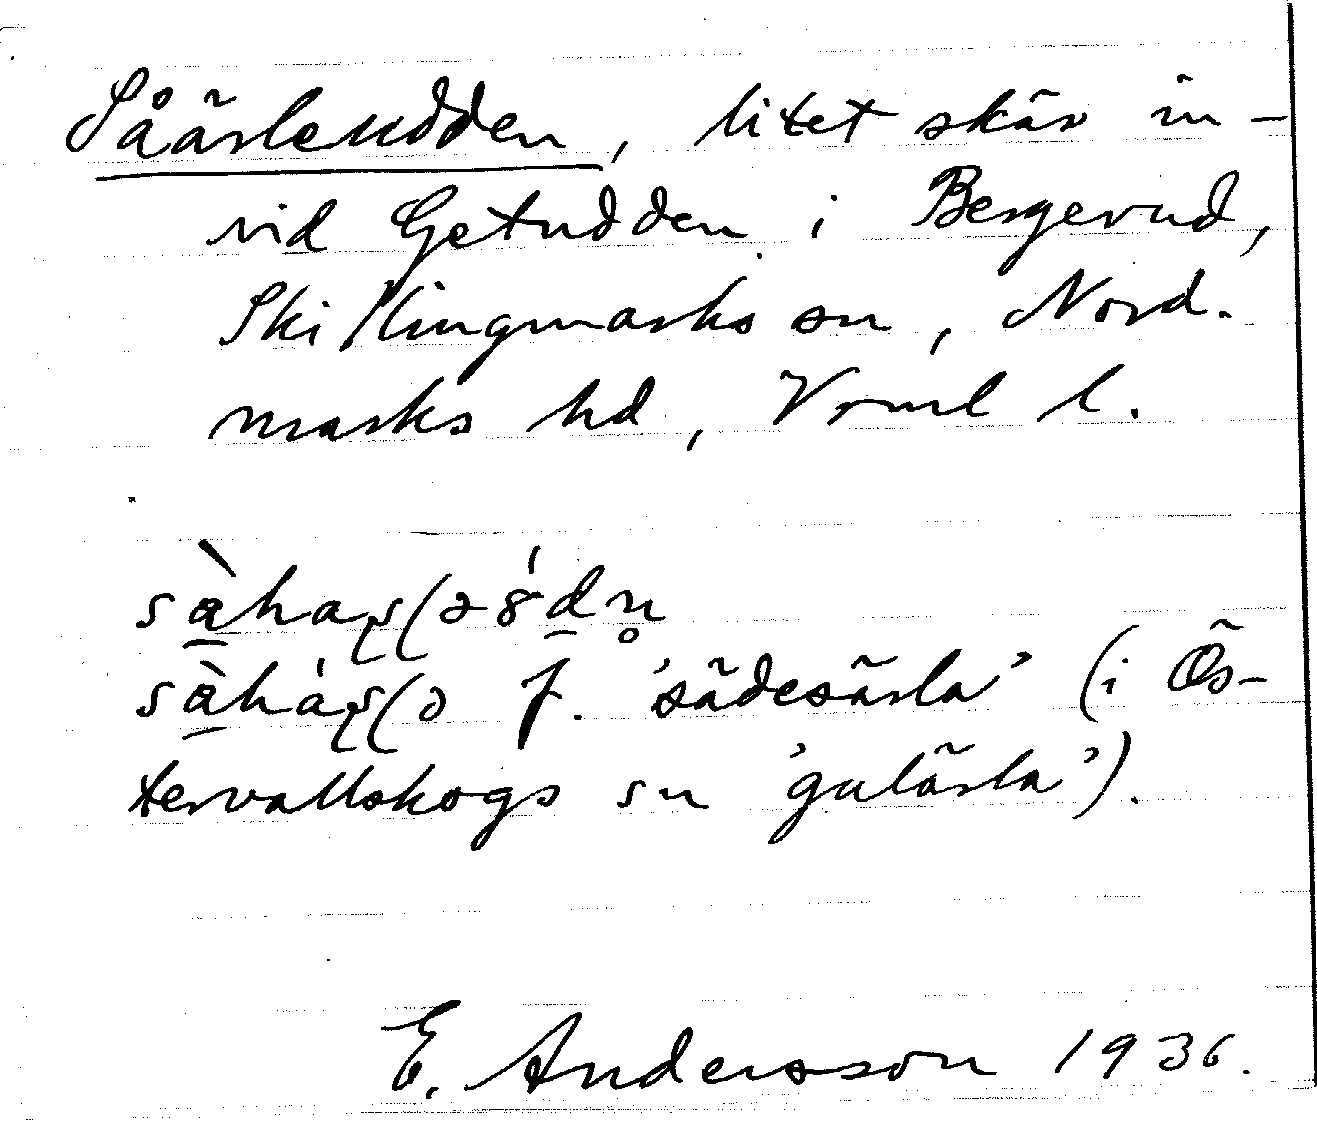 Såärleudden, litet skär in-
vid Getudden i Bergerud,
Skillingmarks sn, Nord-
marks hd, Vrml l.
f. 'sädesärla' (i Ös-
tervallskogs sn 'gulärla').
E. Andersson 1936.